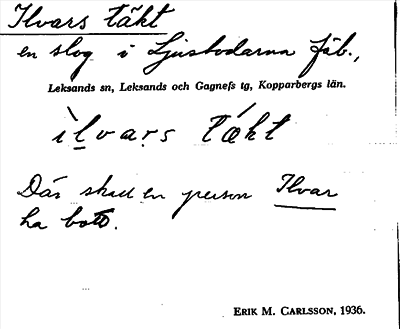 Ilvars täkt
en slog i Ljusbodarna fäb.,
Leksands sn, Leksands och Gagnefs tg, Kopparbergs län.
ìlvars tákt
Där skall en person Ilvar
ha bott.
ERIK M. CARLSSON, 1936.